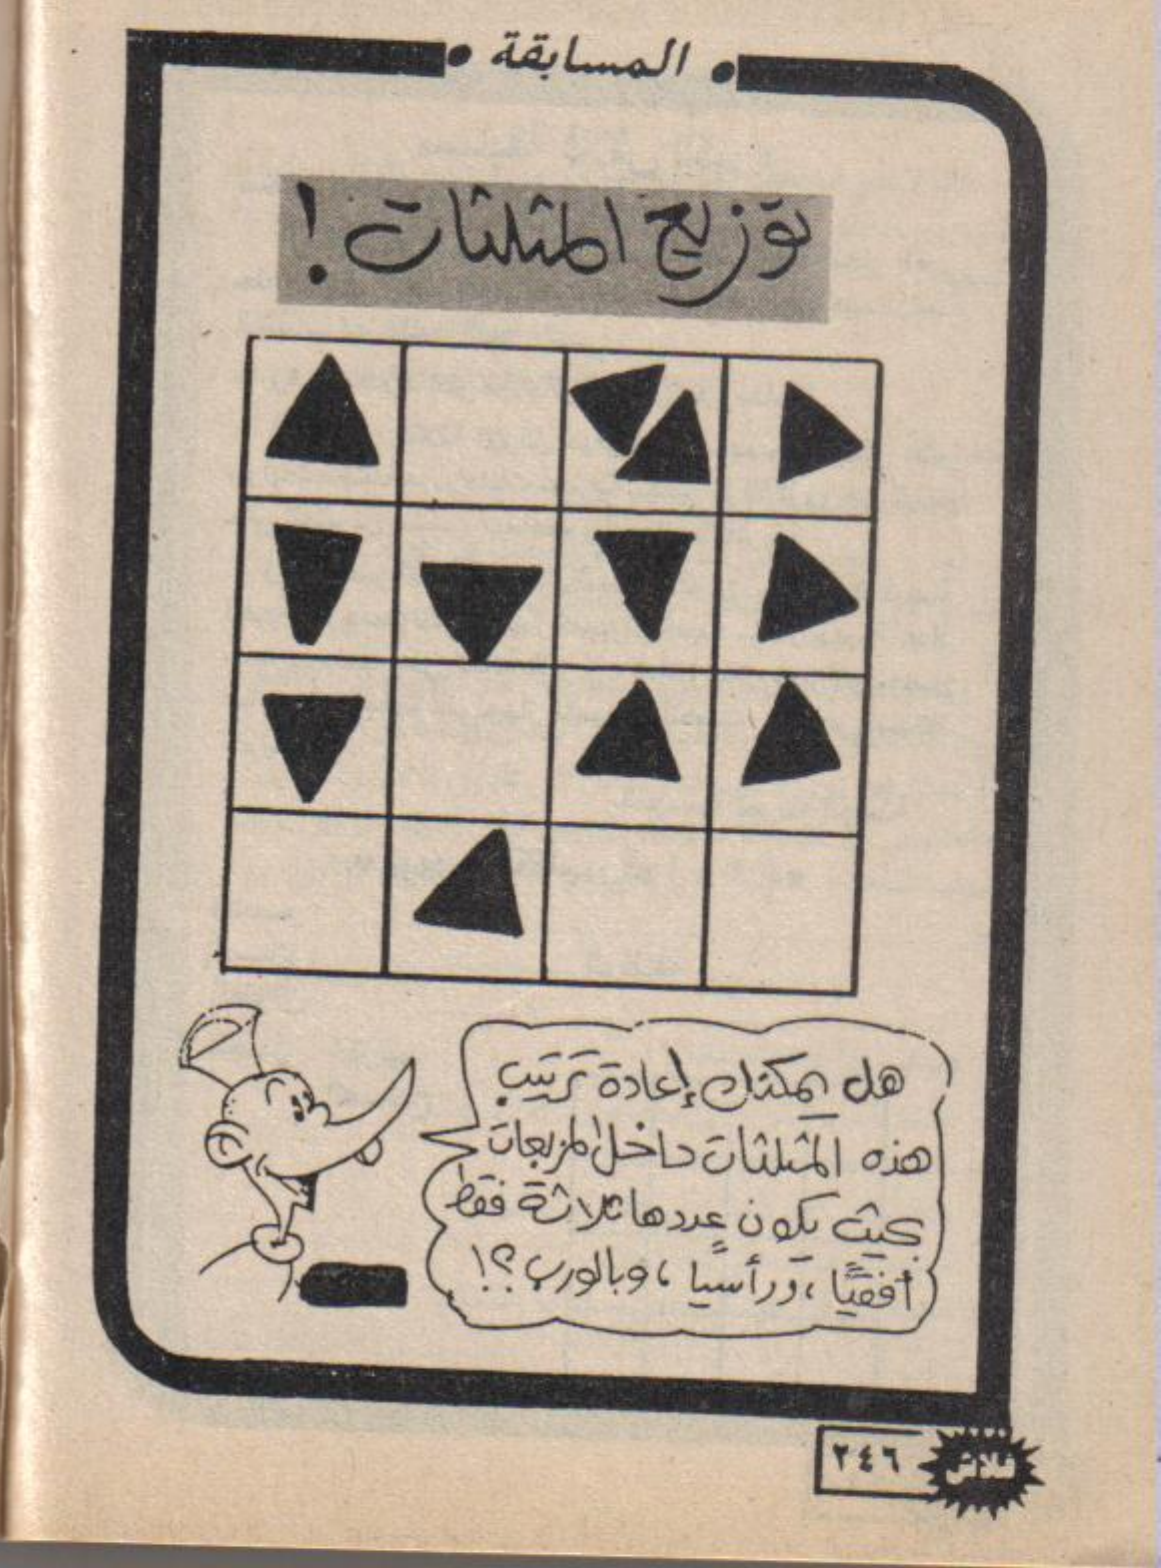 المسابقة
توزيع المثلثات !
هل يمكنك إعادة ترتيب
هذه المثلثات داخل المربعات
بحيث يكون عددها ثلاثة فقط
أفقيًا ، ورأسيا ، وبالورب ؟!
٢٤٦
فلاش